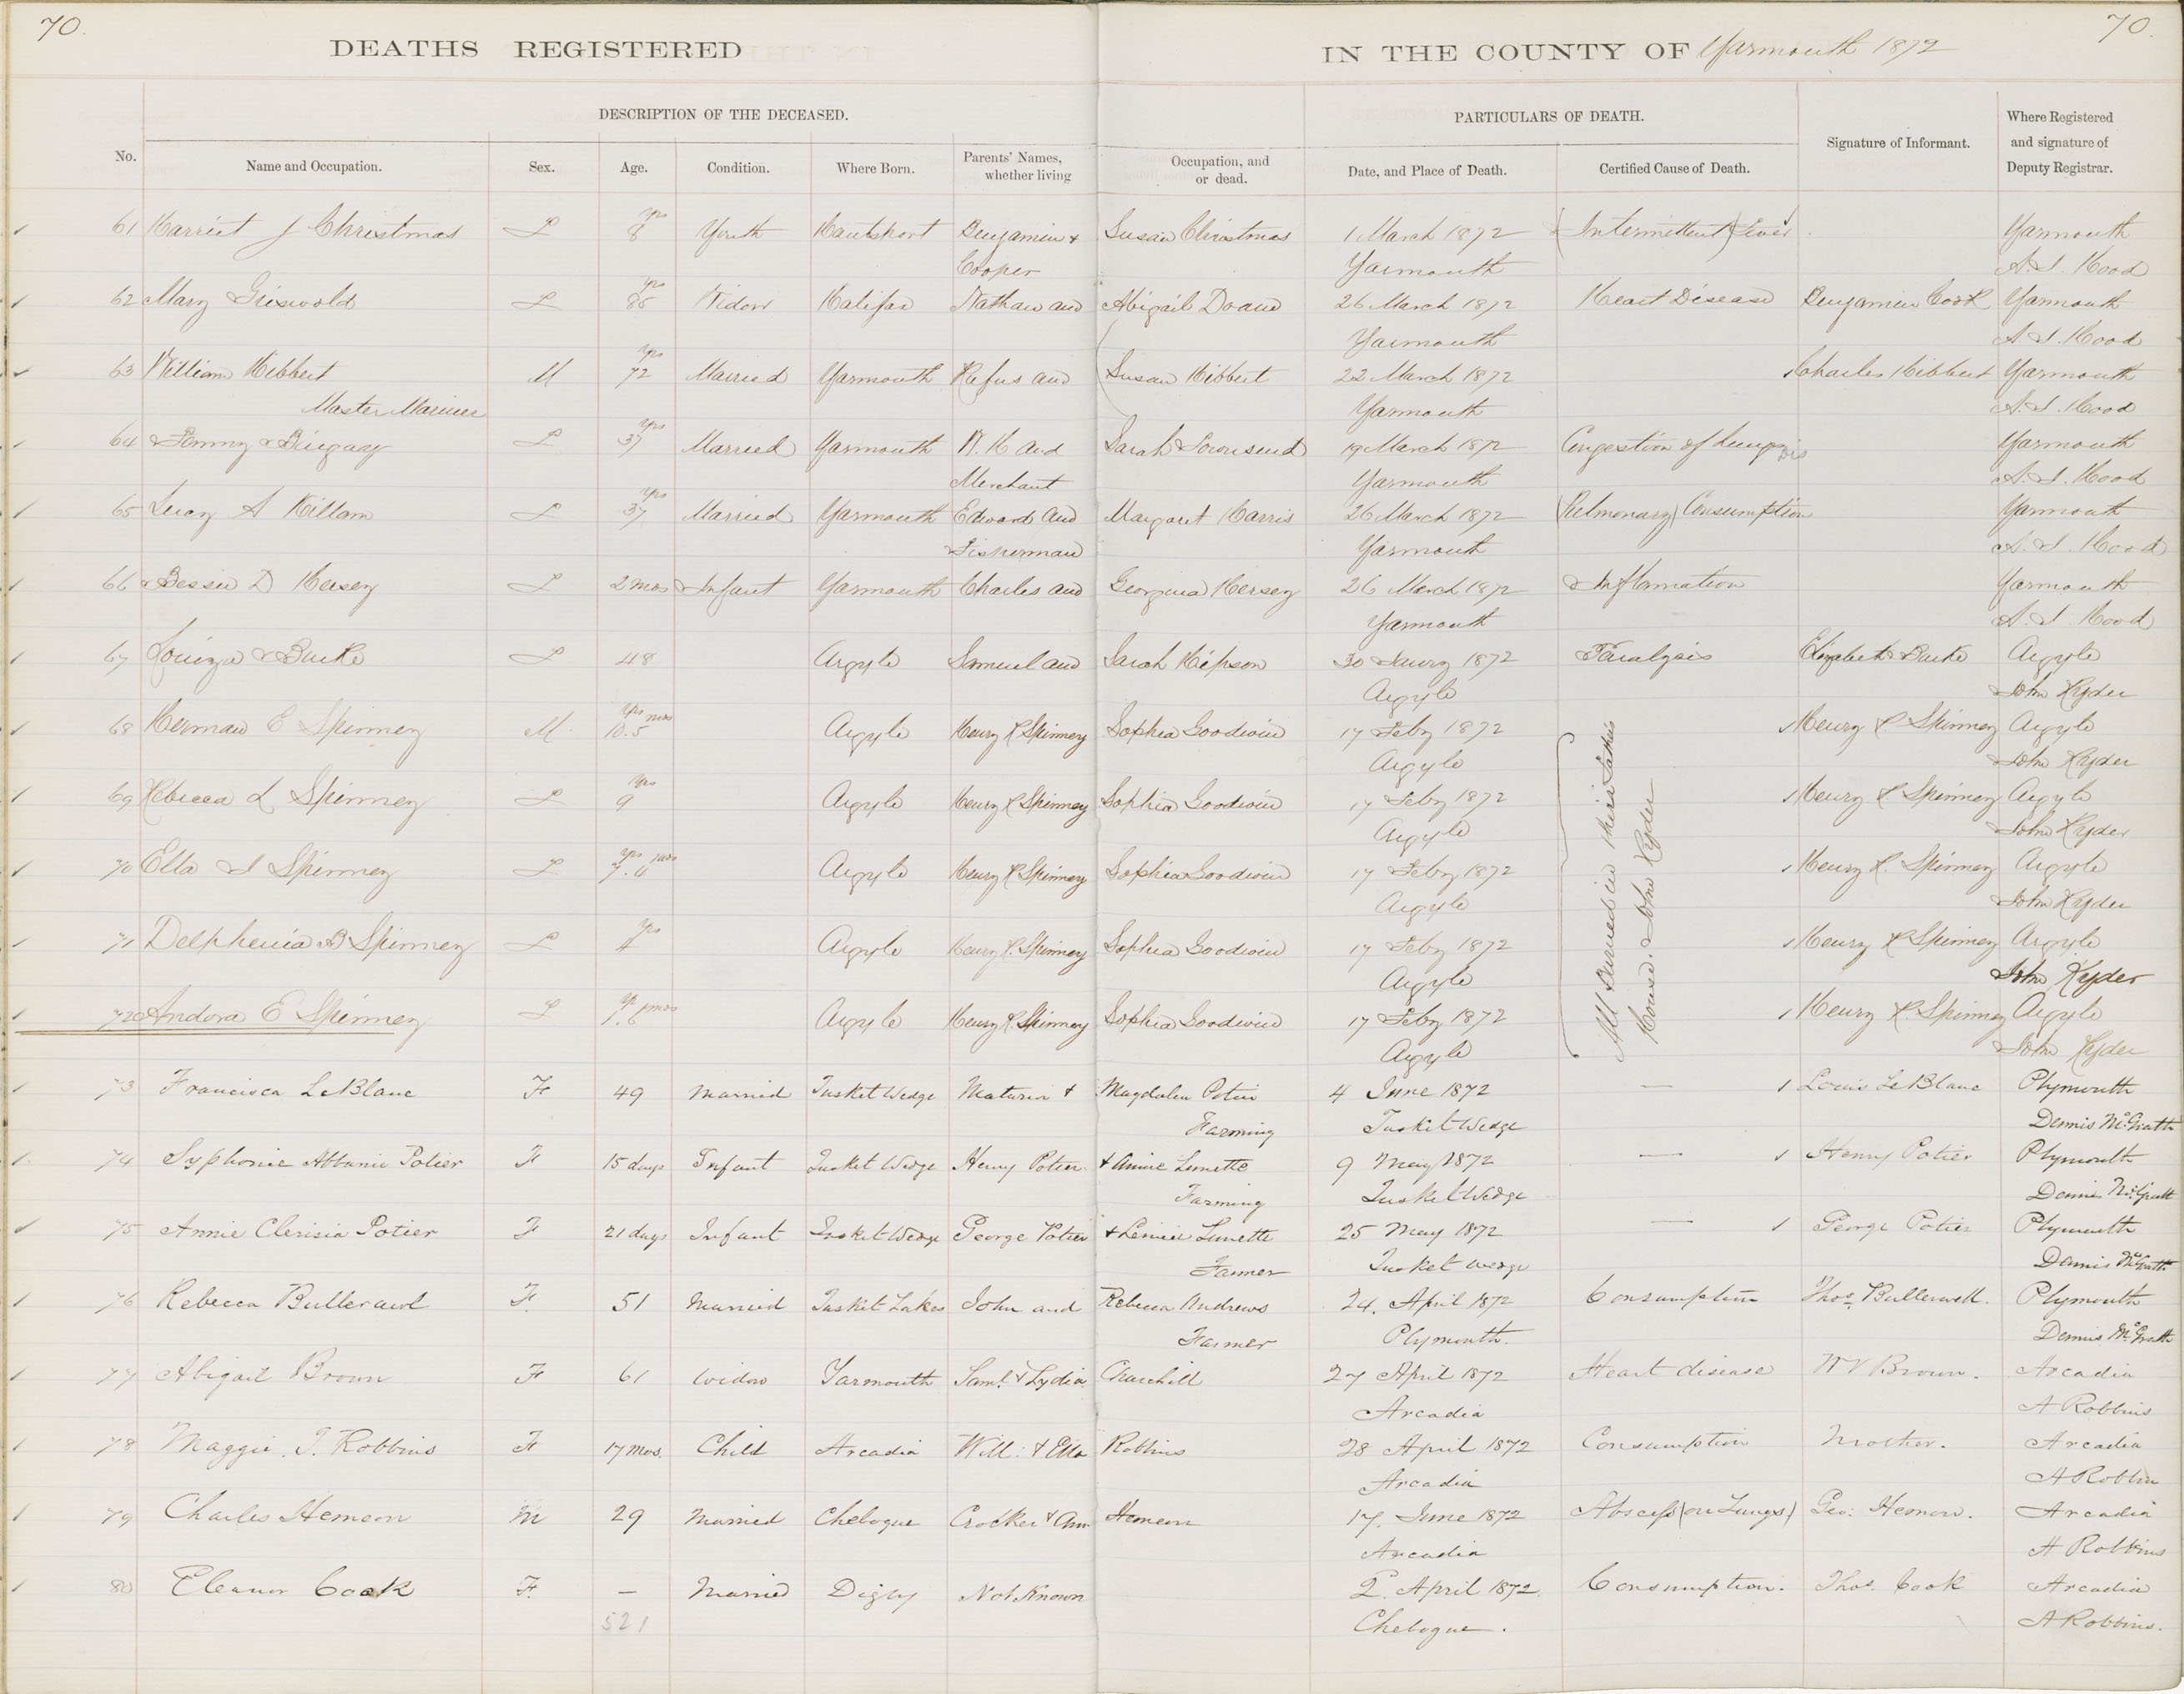 70.
70.
DEATHS REGISTERED
IN THE COUNTY OF Yarmouth 1872
DESCRIPTION OF THE DECEASED.
PARTICULARS OF DEATH.
No.
Name and Occupation.
Sex.
Age.
Condition.
Where Born.
Parents' Names, whether living
Occupation, and or dead.
Date, and Place of Death.
Certified Cause of Death.
Signature of Informant.
Where Registered and signature of Deputy Registrar.
yrs
61 Harriet J Christmas F 8 Youth Hantsport Benjamin & Susan Christmas 1 March 1872 (Intermittent) Fever Yarmouth
Cooper Yarmouth A. J. Hood
yrs
62 Mary Griswold F 86 Widow Halifax Nathan and Abigail Doane 26 March 1872 Heart Disease Benjamin Cook Yarmouth
Yarmouth A. J. Hood
yrs
63 William Hibbert M 72 Married Yarmouth Rufus and Susan Hibbert 22 March 1872 Charles Hibbert Yarmouth
Master Mariner Yarmouth A. J. Hood
yrs
64 Fanny F 37 Married Yarmouth W. H and Sarah Townsend 19 March 1872 Congestion of Lungs Yarmouth
Merchant Yarmouth A. J. Hood
yrs
65 Lucy A Killam F 37 Married Yarmouth Edward and Margaret Harris 26 March 1872 (Pulmonary) Consumption Yarmouth
Fisherman Yarmouth A. J. Hood
66 Bessie D Hersey F 2 mos Infant Yarmouth Charles and Georgina Hersey 26 March 1872 Inflamation Yarmouth
Yarmouth A. J. Hood
67 Louiza Burke F 48 Argyle Samuel and Sarah Hipson 30 1872 Paralysis Elizabeth Burke Argyle
Argyle John Ryder
yrs mos
68 Herman E Spinney M 10.5 Argyle Henry R Spinney Sophia Goodwin 17 Feby 1872 Henry R Spinney Argyle
Argyle John Ryder
yrs
69 Rebecca L Spinney F 9 Argyle Henry R Spinney Sophia Goodwin 17 Feby 1872 Henry R Spinney Argyle
Argyle John Ryder
yrs mos
70 Etta J Spinney F 7.6 Argyle Henry R Spinney Sophia Goodwin 17 Feby 1872 Henry R. Spinney Argyle
Argyle John Ryder
yrs
71 Delphenia B Spinney F 4 Argyle Henry R. Spinney Sophia Goodwin 17 Feby 1872 Henry R Spinney Argyle
Argyle John Ryder
yr mos
72 Andora E Spinney F 1.6 Argyle Henry R. Spinney Sophia Goodwin 17 Feby 1872 Henry R. Spinney Argyle
Argyle John Ryder
All Burned in their Father's
House. John Ryder
73 Francisca LeBlanc F 49 Married Tusket Wedge Maturin & Magdalen Potier 4 June 1872 — Louis LeBlanc Plymouth
Farming Tusket Wedge Dennis McGrath
74 Syphonie Albanie Potier F 15 days Infant Tusket Wedge Henry Potier & Annie Surette 9 May 1872 — Henry Potier Plymouth
Farming Tusket Wedge Dennis McGrath
75 Annie Clerisia Potier F 21 days Infant Tusket Wedge George Potier & Surette 25 May 1872 — George Potier Plymouth
Farmer Tusket Wedge Dennis McGrath
76 Rebecca F. 51 Married Tusket Lakes John and Rebecca Andrews 24. April 1872 Consumption Thos. Bullerwell. Plymouth
Farmer Plymouth. Dennis McGrath
77 Abigail Brown F 61 Widow Yarmouth Saml. & Lydia Churchill 27 April 1872 Heart disease W V Brown. Arcadia
Arcadia A Robbins
78 Maggie. J. Robbins F 17 mos. Child Arcadia Will: & Etta Robbins 28 April 1872 Consumption Mother. Arcadia
Arcadia A Robbins
79 Charles Hemeon M 29 Married Chebogue Crocker & Ann Hemeon 17. June 1872 Abscess (on Lungs) Geo: Hemeon. Arcadia
Arcadia A Robbins
80 Eleanor Cook F. — Married Digby Not Known 2. April 1872 Consumption. Thos. Cook Arcadia
521 Chebogue. A Robbins.